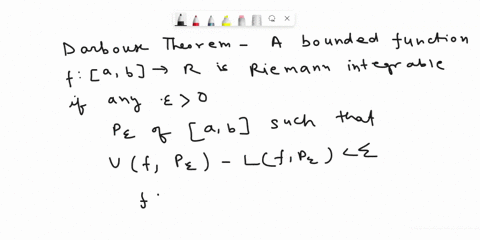 Darboux Theorem - A bounded function
f: [a, b] → R is Riemann integrable
if any ε > 0
Pε of [a, b] such that
U (f, Pε) - L(f, Pε) < ε
f.